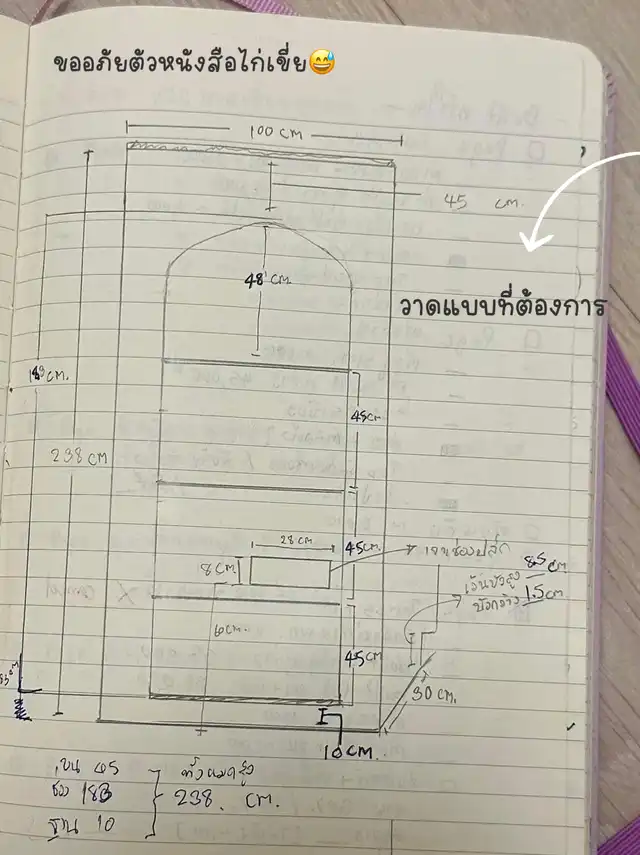 ขออภัยตัวหนังสือไก่เขี่ย😅
100 CM
45 cm.
48 CM.
วาดแบบที่ต้องการ
183 CM.
45cm.
238 CM
28 CM
45cm.
เจาะช่องปลั๊ก
8 CM.
85 cm
เว้นบัวสูง
บัวกว้าง 1.5 cm
45 cm
30 CM.
10 CM.
บน 45
ทั้งหมดสูง
ช่อง 183
238. CM.
ฐาน 10